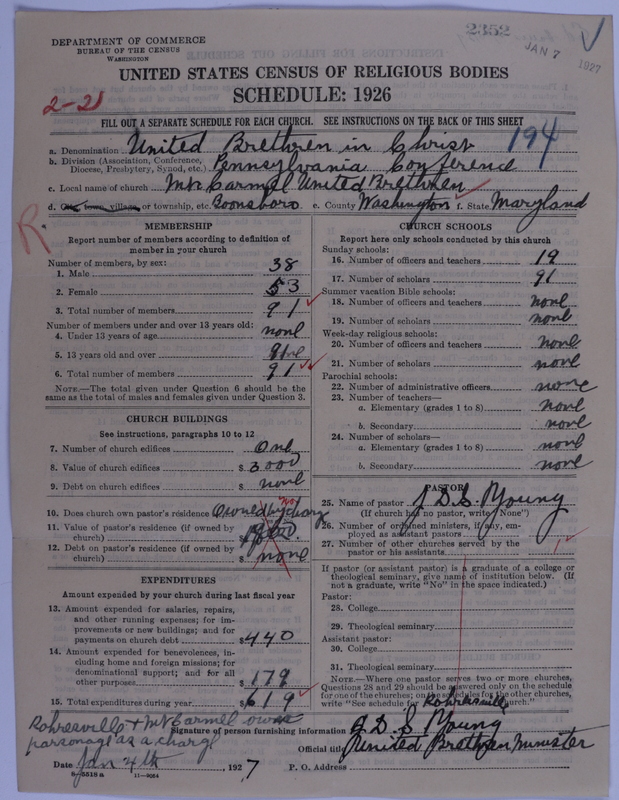 2352
JAN 7 1927
DEPARTMENT OF COMMERCE
BUREAU OF THE CENSUS
WASHINGTON
UNITED STATES CENSUS OF RELIGIOUS BODIES
SCHEDULE: 1926
2-21
FILL OUT A SEPARATE SCHEDULE FOR EACH CHURCH. SEE INSTRUCTIONS ON THE BACK OF THIS SHEET
a. Denomination United Brethren in Christ 194
b. Division (Association, Conference, Diocese, Presbytery, Synod, etc.) Pennsylvania Conference
c. Local name of church Mt Carmel United Brethren
d. City, town, village, or township, etc. Boonsboro e. County Washington f. State Maryland
R
MEMBERSHIP
Report number of members according to definition of
member in your church
Number of members, by sex:
1. Male 38
2. Female 53
3. Total number of members 91
Number of members under and over 13 years old:
4. Under 13 years of age none
5. 13 years old and over 91
6. Total number of members 91
NOTE.—The total given under Question 6 should be the
same as the total of males and females given under Question 3.
CHURCH BUILDINGS
See instructions, paragraphs 10 to 12
7. Number of church edifices One
8. Value of church edifices $3000
9. Debt on church edifices $ none
10. Does church own pastor's residence Owned by charg no
11. Value of pastor's residence (if owned by
church) $
12. Debt on pastor's residence (if owned by
church) $ none
EXPENDITURES
Amount expended by your church during last fiscal year
13. Amount expended for salaries, repairs,
and other running expenses; for im-
provements or new buildings; and for
payments on church debt $440
14. Amount expended for benevolences, in-
cluding home and foreign missions; for
denominational support; and for all
other purposes $179
15. Total expenditures during year $619
CHURCH SCHOOLS
Report here only schools conducted by this church
Sunday schools:
16. Number of officers and teachers 19
17. Number of scholars 91
Summer vacation Bible schools:
18. Number of officers and teachers none
19. Number of scholars none
Week-day religious schools:
20. Number of officers and teachers none
21. Number of scholars none
Parochial schools:
22. Number of administrative officers none
23. Number of teachers—
a. Elementary (grades 1 to 8) none
b. Secondary none
24. Number of scholars—
a. Elementary (grades 1 to 8) none
b. Secondary none
PASTOR
25. Name of pastor J. D. S. Young
(If church has no pastor, write "None")
26. Number of ordained ministers, if any, em-
ployed as assistant pastors
27. Number of other churches served by the
pastor or his assistants 1
If pastor (or assistant pastor) is a graduate of a college or
theological seminary, give name of institution below. (If
not a graduate, write "No" in the space indicated.)
Pastor:
28. College
29. Theological seminary
Assistant pastor:
30. College
31. Theological seminary
NOTE.—Where one pastor serves two or more churches,
Questions 28 and 29 should be answered only on the schedule
for one of the churches; on the schedules for the other churches,
write "See schedule for Rohrersville church."
Rohresville + Mt Carmel own
parsonage as a charge
Signature of person furnishing information J. D. S. Young
Official title United Brethren Minister
Date Jan 4th, 1927 P. O. Address
8-5518 a 11-9064